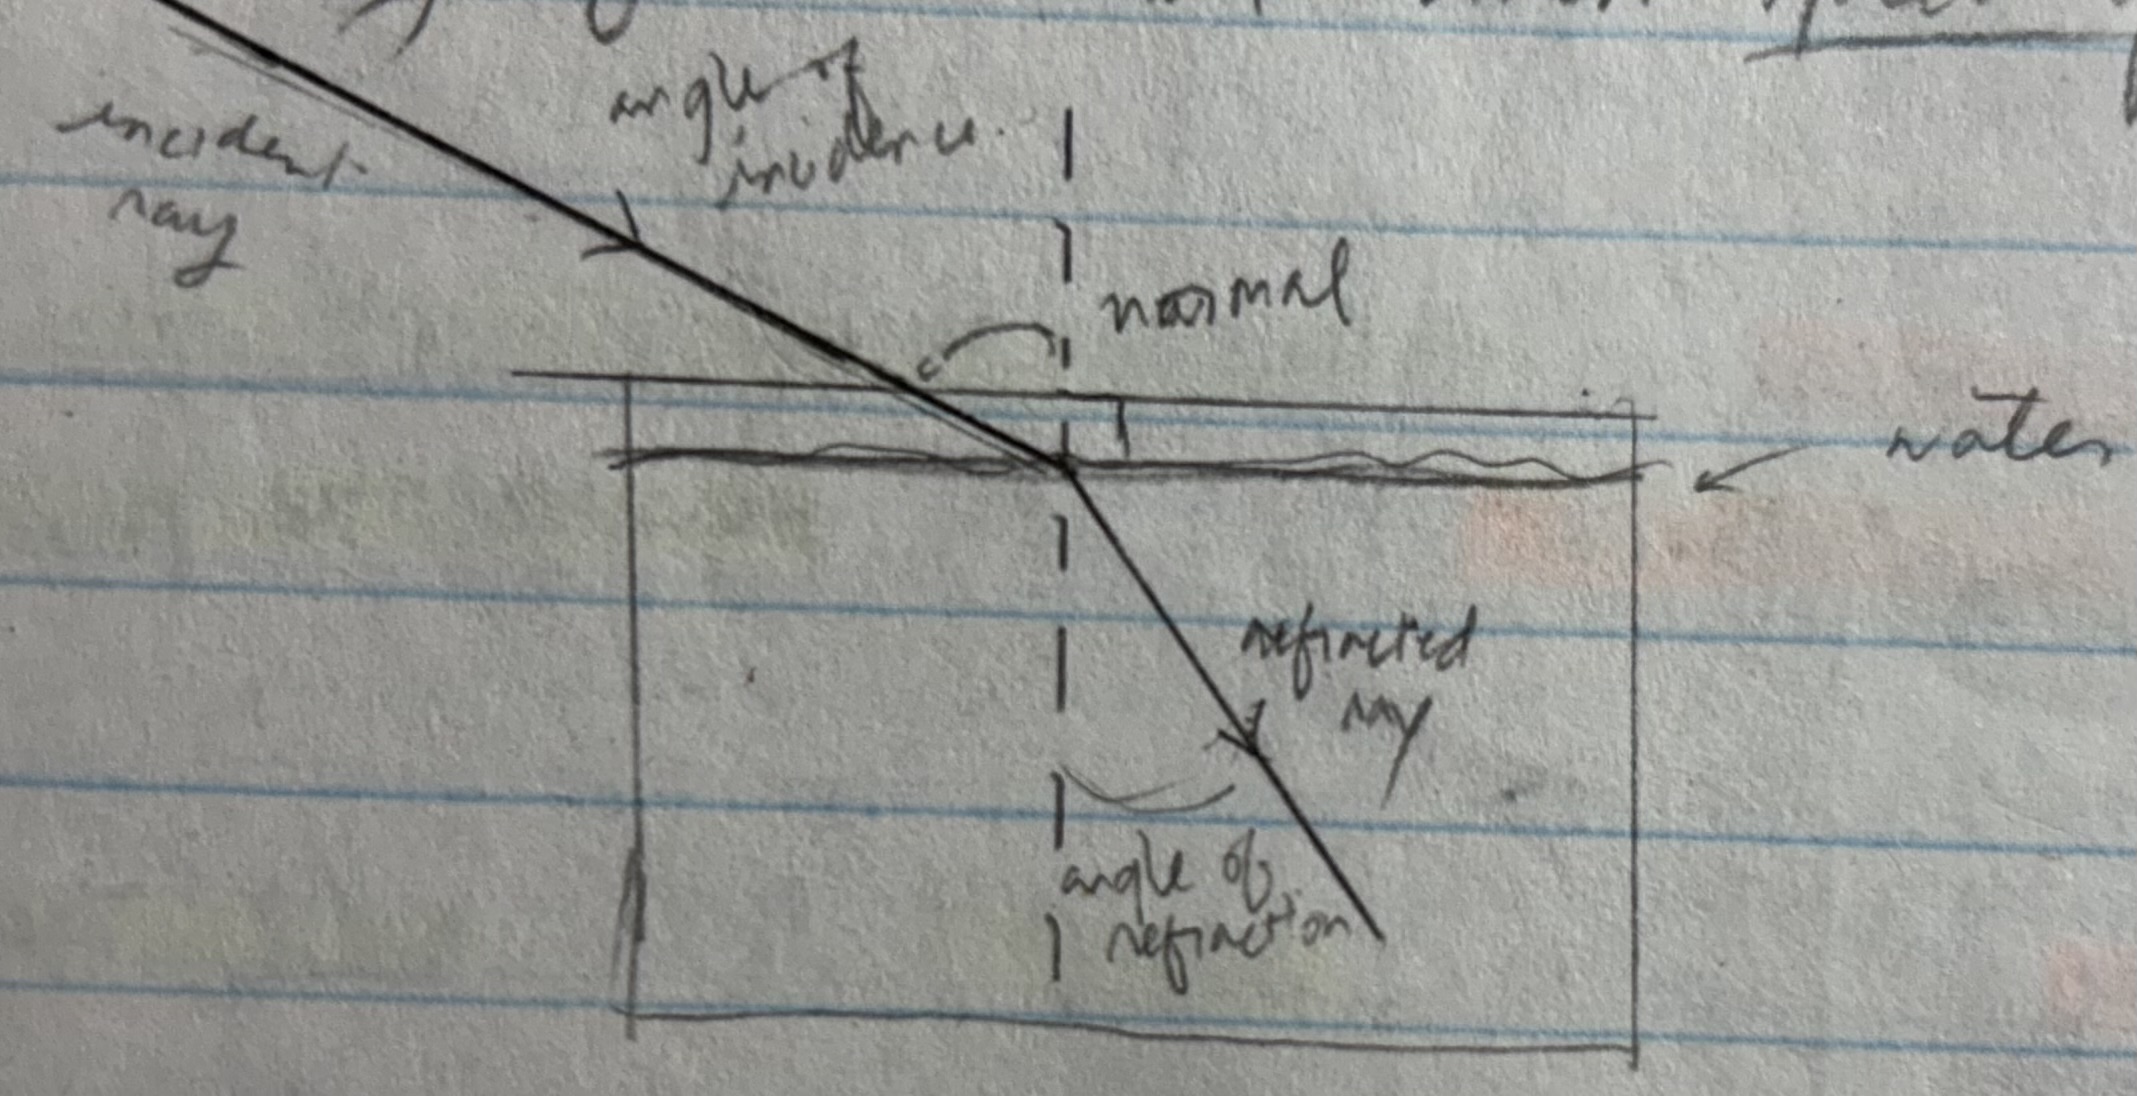 angle of
incidence.
incident
ray
normal
water
refracted
ray
angle of
refraction